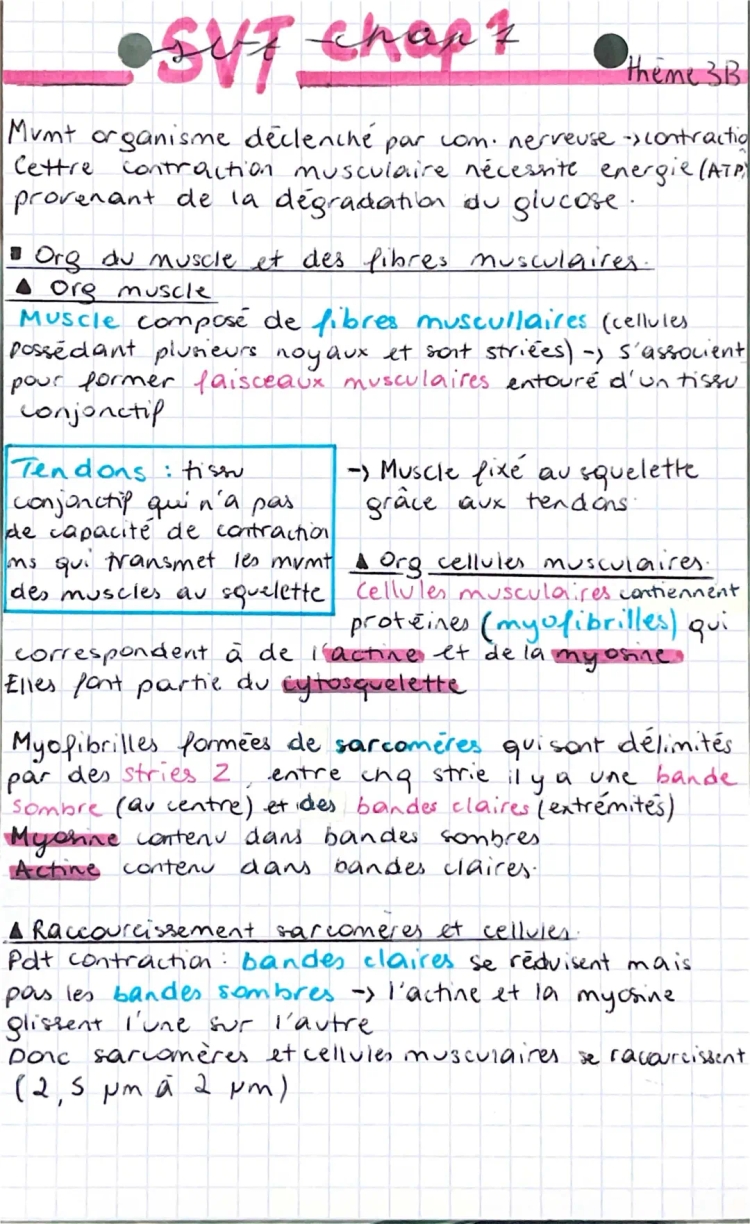 SVT chap 1
thème 3B
Mvmt organisme déclenché par com. nerveuse -> contractio
Cettre contraction musculaire nécessite energie (ATP)
provenant de la dégradation du glucose.
Org du muscle et des fibres musculaires.
▲ Org muscle
Muscle composé de fibres muscullaires (cellules
possédant plusieurs noyaux et sont striées) -> s'associent
pour former faisceaux musculaires entouré d'un tissu
conjonctif
Tendons : tissu
conjonctif qui n'a pas
de capacité de contraction
ms qui transmet les mvmt
des muscles au squelette
-> Muscle fixé au squelette
grâce aux tendons.
▲ Org cellules musculaires.
Cellules musculaires contiennent
protéines (myofibrilles) qui
correspondent à de l'actine et de la myosine
Elles font partie du cytosquelette
Myofibrilles formées de sarcomères qui sont délimités
par des stries Z, entre chq strie il y a une bande
sombre (au centre) et des bandes claires (extrémités)
Myosine contenu dans bandes sombres
Actine contenu dans bandes claires.
▲ Raccourcissement sarcomères et cellules.
Pdt contraction : bandes claires se réduisent mais
pas les bandes sombres -> l'actine et la myosine
glissent l'une sur l'autre
Donc sarcomères et cellules musculaires se racourcissent
(2,5 µm à 2 µm)